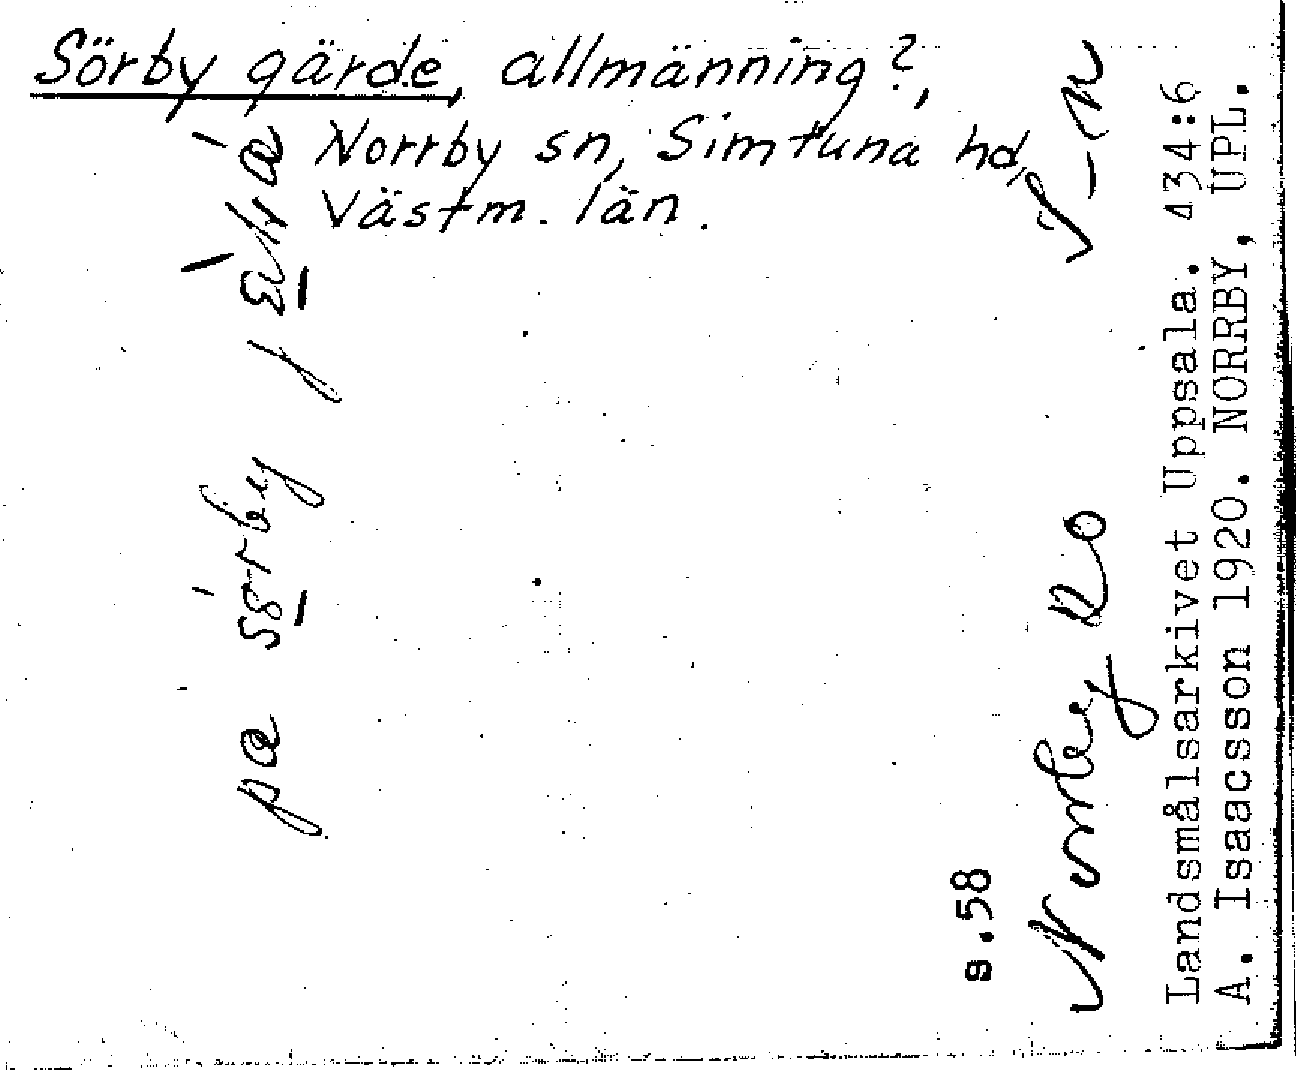 Sörby gärde, allmänning?,
Norrby sn, Simtuna hd,
Västm. län.
på sörby
Norrby so
s.58
Landsmålsarkivet Uppsala. 434:6
A. Isaacsson 1920. NORRBY, UPL.